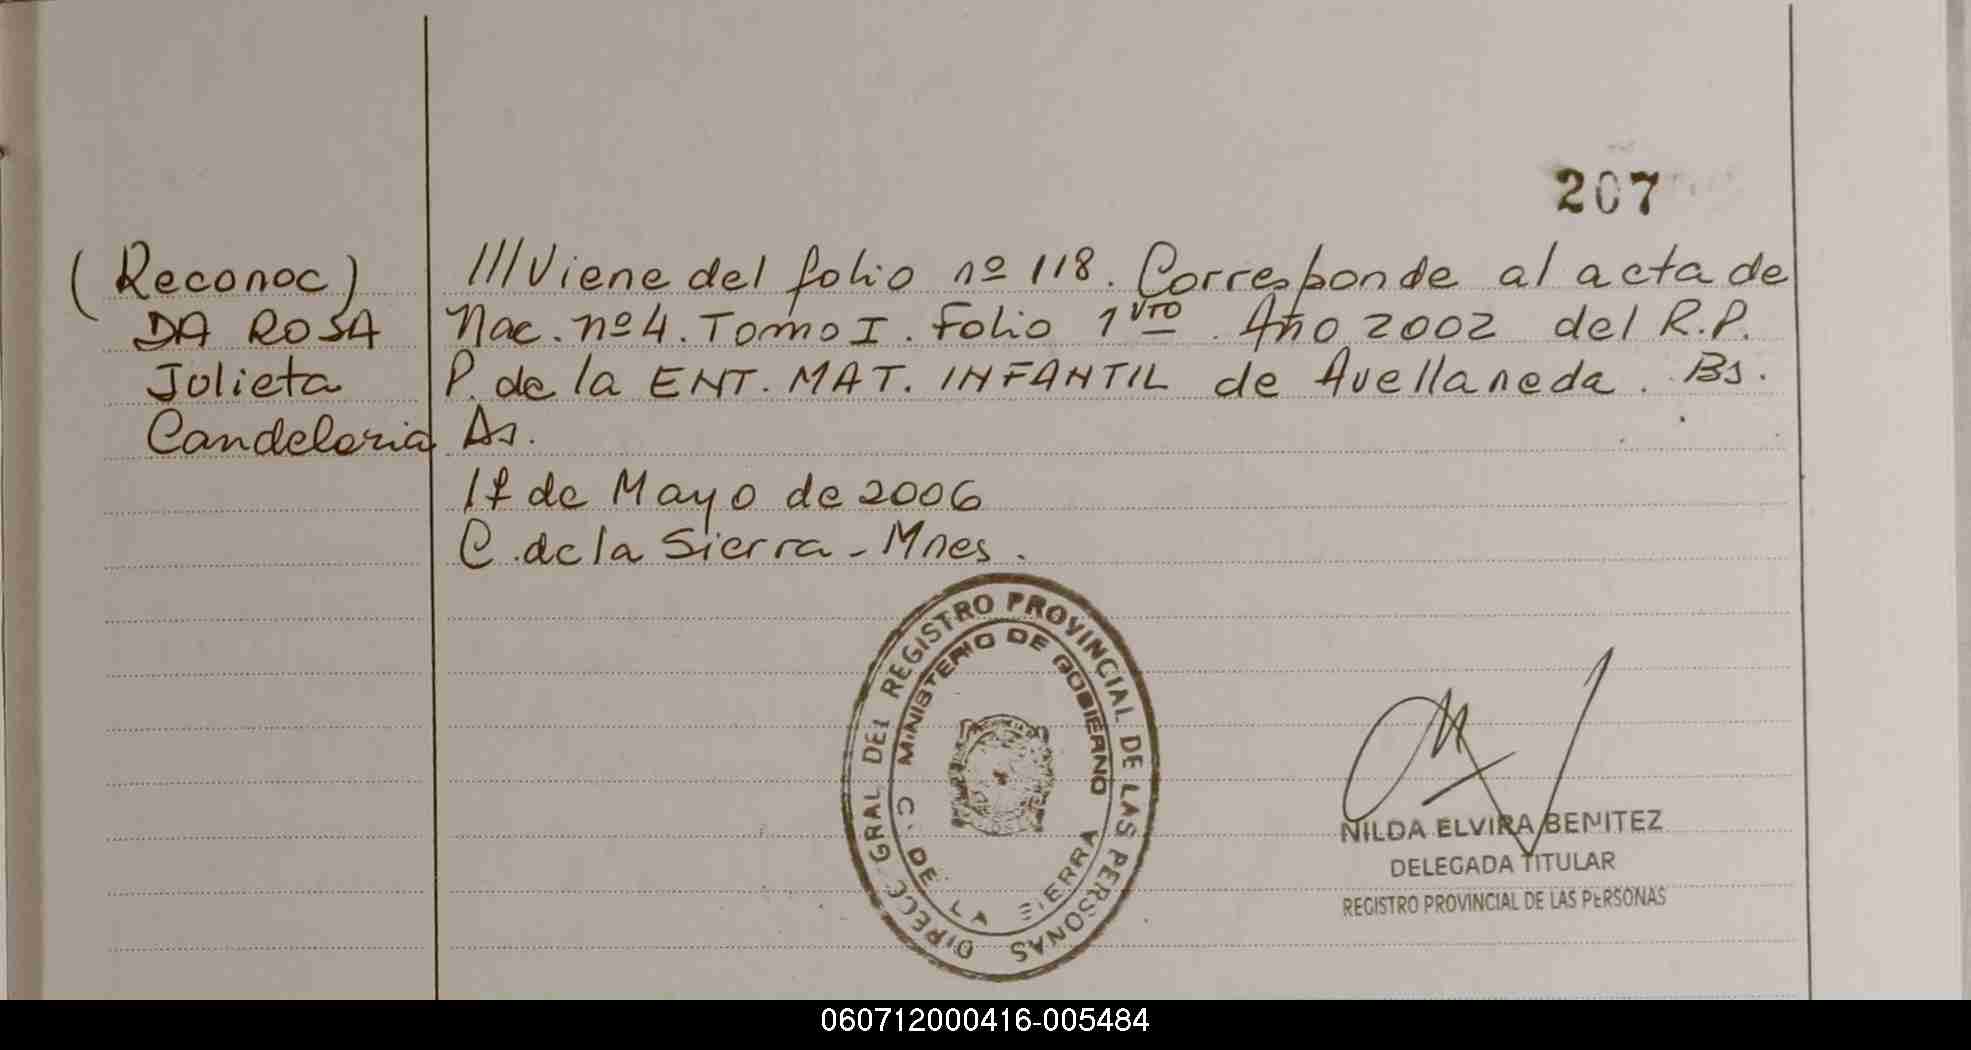 207
(Reconoc) ///Viene del folio nº 118. Corresponde al acta de
DA ROSA Nac. nº 4. Tomo I. Folio 1 vto. Año 2002 del R.P.
Julieta P. de la ENT. MAT. INFANTIL de Avellaneda. Bs.
Candelaria As.
17 de Mayo de 2006
C. de la Sierra - Mnes.
DIRECC GRAL DEL REGISTRO PROVINCIAL DE LAS PERSONAS
MINISTERIO DE GOBIERNO
C. DE LA SIERRA
NILDA ELVIRA BENITEZ
DELEGADA TITULAR
REGISTRO PROVINCIAL DE LAS PERSONAS
060712000416-005484